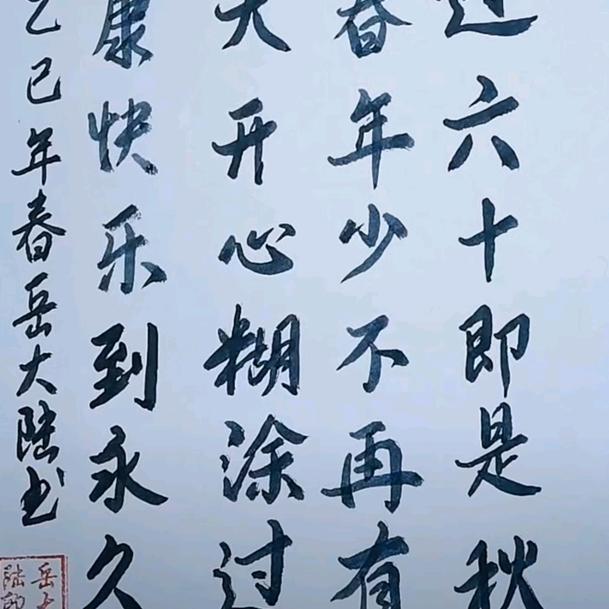 过六十即是秋
春年少不再有
天开心糊涂过
康快乐到永久
乙巳年春岳大陆书
岳大
陆印